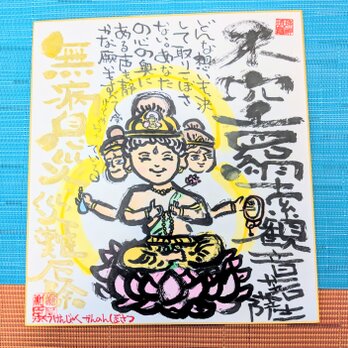 不空羂索観音菩薩
どんな想いも決
して取りこぼさ
ない。あなた
の心の奥に
ある声を静
かな願
無病息災 災難厄除
ふくうけんじゃくかんのんぼさつ